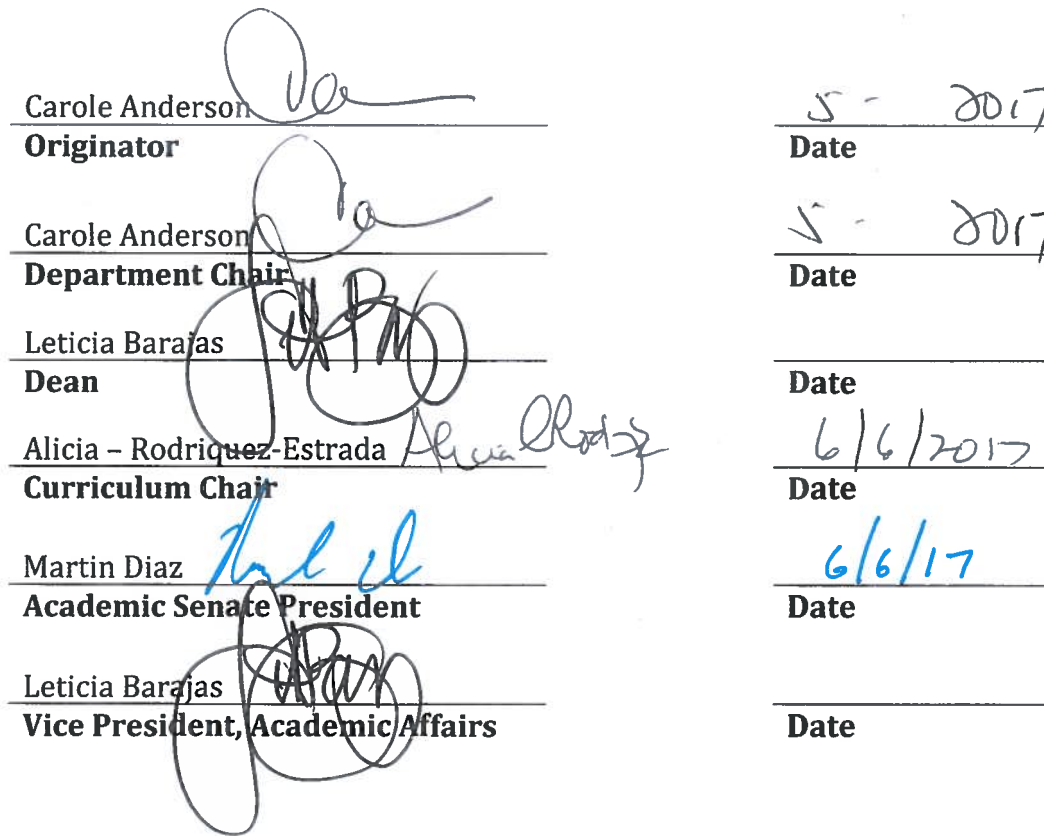 Carole Anderson 5 - 2017
Originator Date
Carole Anderson 5 - 2017
Department Chair Date
Leticia Barajas
Dean Date
Alicia – Rodriquez-Estrada Alicia 6/6/2017
Curriculum Chair Date
Martin Diaz 6/6/17
Academic Senate President Date
Leticia Barajas
Vice President, Academic Affairs Date